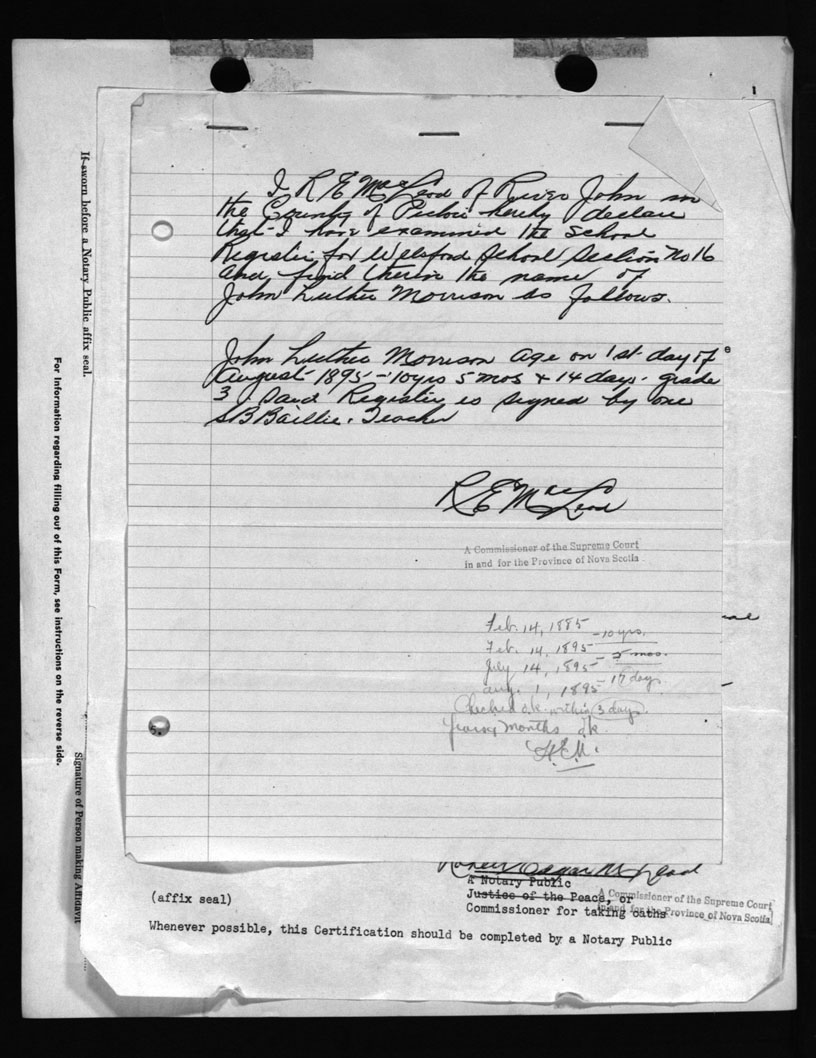 1
I R E MacLeod of River John in
the County of Pictou hereby declare
that I have examined the School
Register for Welsford School Section No 16
and find therein the name of
John Luther Morrison as follows.
John Luther Morrison age on 1st day of
August 1895 - 10 yrs 5 mos + 14 days - grade
3 Said Register is signed by one
S B Baillie. Teacher
R E MacLeod
A Commissioner of the Supreme Court
in and for the Province of Nova Scotia
Feb. 14, 1885
- 10 yrs.
Feb. 14, 1895
- 5 mos.
July 14, 1895
- 17 days.
Aug. 1, 1895
Checked o.k. within (3 days).
Years, months o.k.
H.E.M.
5.
Edgar McLeod
A Notary Public
Justice of the Peace, or
Commissioner for taking oaths
A Commissioner of the Supreme Court
in and for the Province of Nova Scotia
(affix seal)
Whenever possible, this Certification should be completed by a Notary Public
If sworn before a Notary Public affix seal.
For Information regarding filling out of this Form, see instructions on the reverse side.
Signature of Person making Affidavit